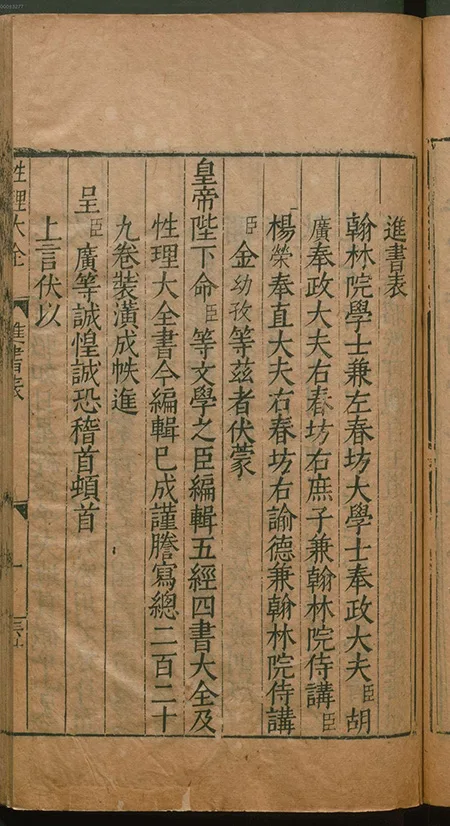 進書表
翰林院學士兼左春坊大學士奉政大夫臣胡
廣奉政大夫右春坊右庶子兼翰林院侍講臣
楊榮奉直大夫右春坊右諭德兼翰林院侍講
臣金幼孜等茲者伏蒙
皇帝陛下命臣等文學之臣編輯五經四書大全及
性理大全書今編輯已成謹謄寫總二百二十
九卷裝潢成帙進
呈臣廣等誠惶誠恐稽首頓首
上言伏以
性理大全
進書表
一